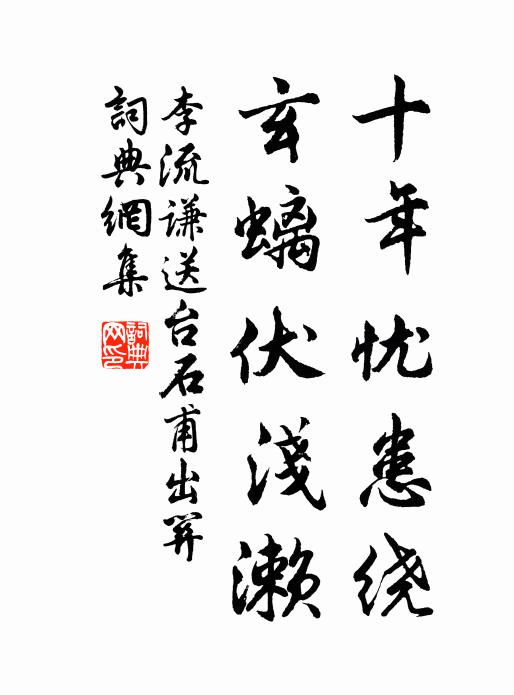 十年忧患绕
玄螭伏淺濑
李流谦送台石甫出關
詞典網集
詞典網印